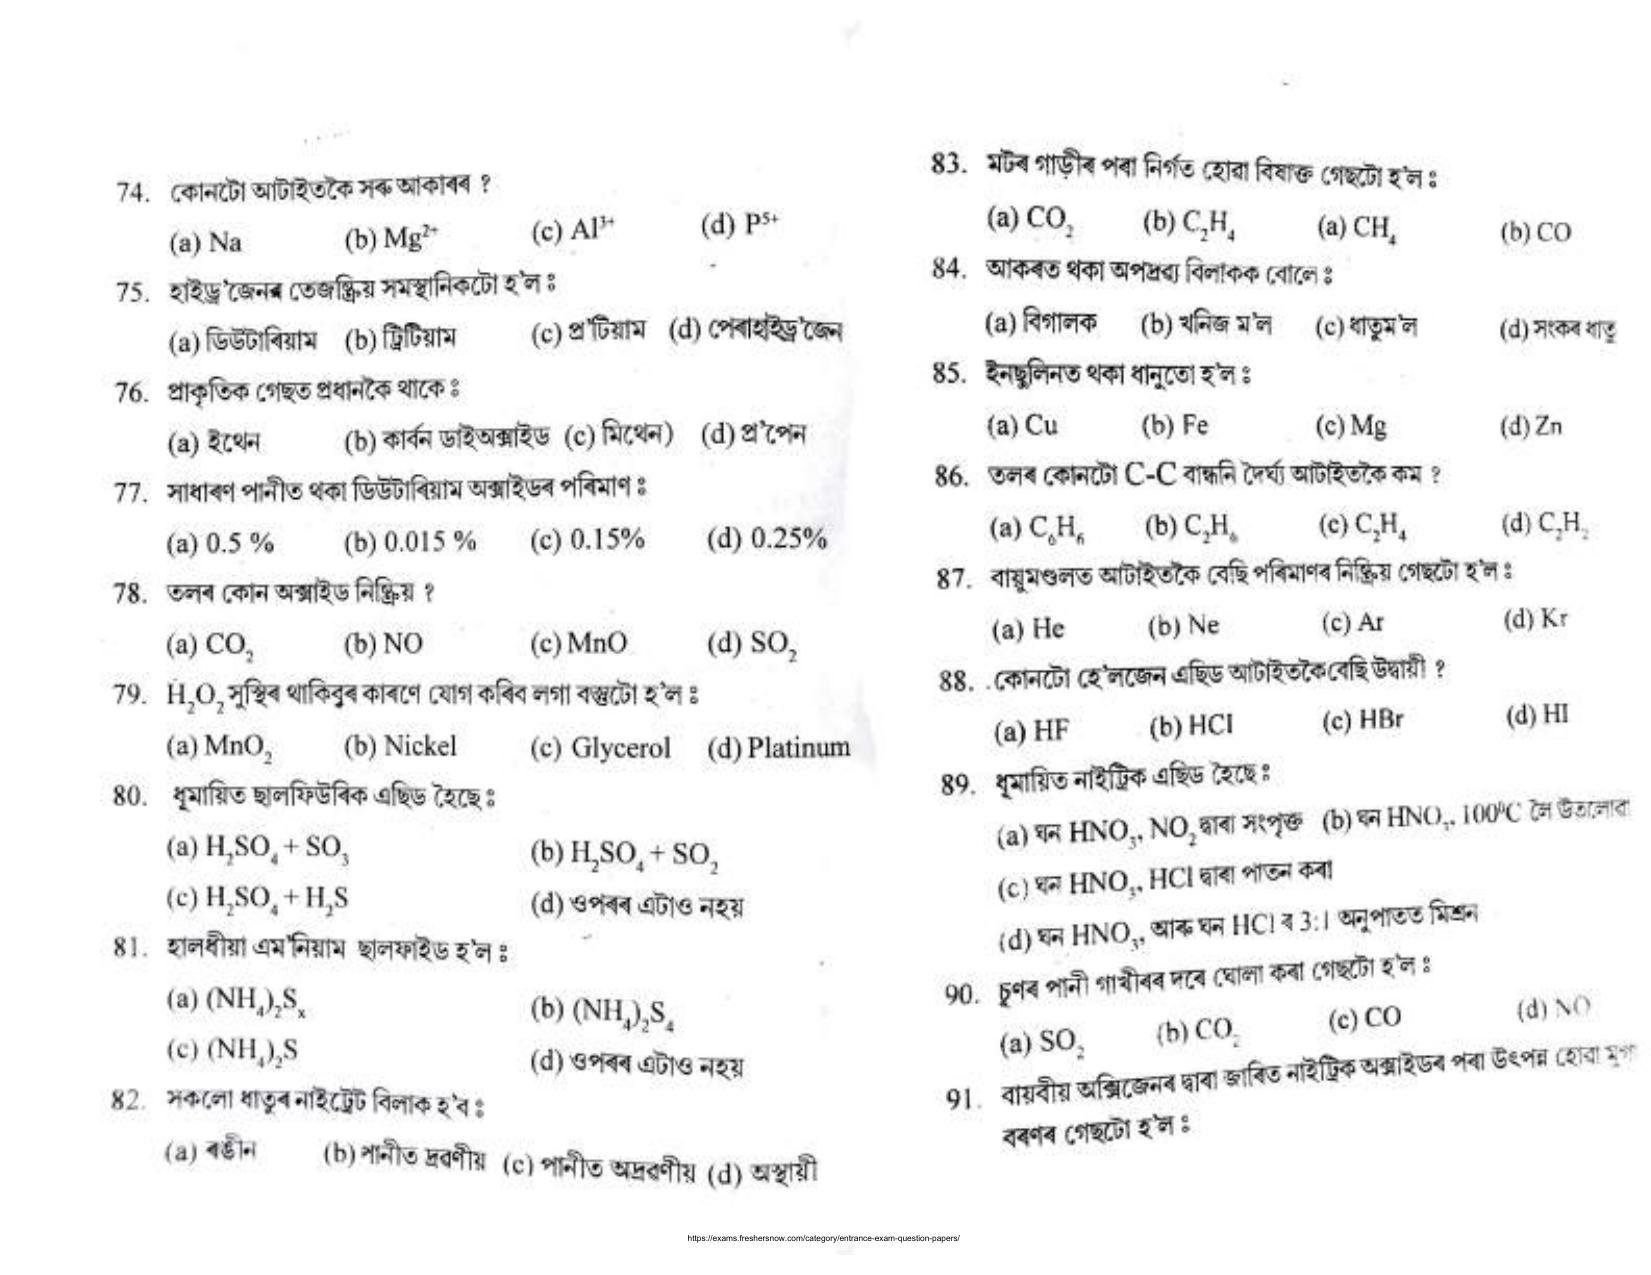 74. কোনটো আটাইতকৈ সৰু আকাৰৰ ?
(a) Na (b) Mg²⁺ (c) Al³⁺ (d) P⁵⁺
75. হাইড্ৰ'জেনৰ তেজষ্ক্ৰিয় সমস্থানিকটো হ'ল ঃ
(a) ডিউটাৰিয়াম (b) ট্ৰিটিয়াম (c) প্ৰ'টিয়াম (d) পেৰাহাইড্ৰ'জেন
76. প্ৰাকৃতিক গেছত প্ৰধানকৈ থাকে ঃ
(a) ইথেন (b) কাৰ্বন ডাইঅক্সাইড (c) মিথেন) (d) প্ৰ'পেন
77. সাধাৰণ পানীত থকা ডিউটাৰিয়াম অক্সাইডৰ পৰিমাণ ঃ
(a) 0.5 % (b) 0.015 % (c) 0.15% (d) 0.25%
78. তলৰ কোন অক্সাইড নিষ্ক্ৰিয় ?
(a) CO₂ (b) NO (c) MnO (d) SO₂
79. H₂O₂ সুস্থিৰ থাকিবুৰ কাৰণে যোগ কৰিব লগা বস্তুটো হ'ল ঃ
(a) MnO₂ (b) Nickel (c) Glycerol (d) Platinum
80. ধূমায়িত ছালফিউৰিক এছিড হৈছে ঃ
(a) H₂SO₄ + SO₃ (b) H₂SO₄ + SO₂
(c) H₂SO₄ + H₂S (d) ওপৰৰ এটাও নহয়
81. হালধীয়া এম'নিয়াম ছালফাইড হ'ল ঃ
(a) (NH₄)₂Sₓ (b) (NH₄)₂S₄
(c) (NH₄)₂S (d) ওপৰৰ এটাও নহয়
82. সকলো ধাতুৰ নাইট্ৰেট বিলাক হ'ব ঃ
(a) ৰঙীন (b) পানীত দ্ৰৱণীয় (c) পানীত অদ্ৰৱণীয় (d) অস্থায়ী
83. মটৰ গাড়ীৰ পৰা নিৰ্গত হোৱা বিষাক্ত গেছটো হ'ল ঃ
(a) CO₂ (b) C₂H₄ (a) CH₄ (b) CO
84. আকৰত থকা অপদ্ৰব্য বিলাকক বোলে ঃ
(a) বিগালক (b) খনিজ ম'ল (c) ধাতুম'ল (d) সংকৰ ধাতু
85. ইনছুলিনত থকা ধানুতো হ'ল ঃ
(a) Cu (b) Fe (c) Mg (d) Zn
86. তলৰ কোনটো C-C বান্ধনি দৈৰ্ঘ্য আটাইতকৈ কম ?
(a) C₆H₆ (b) C₂H₆ (c) C₂H₄ (d) C₂H₂
87. বায়ুমণ্ডলত আটাইতকৈ বেছি পৰিমাণৰ নিষ্ক্ৰিয় গেছটো হ'ল ঃ
(a) He (b) Ne (c) Ar (d) Kr
88. কোনটো হে'লজেন এছিড আটাইতকৈ বেছি উদ্বায়ী ?
(a) HF (b) HCl (c) HBr (d) HI
89. ধূমায়িত নাইট্ৰিক এছিড হৈছে ঃ
(a) ঘন HNO₃, NO₂ দ্বাৰা সংপৃক্ত (b) ঘন HNO₃, 100⁰C লৈ উতলোৱা
(c) ঘন HNO₃, HCl দ্বাৰা পাতন কৰা
(d) ঘন HNO₃, আৰু ঘন HCl ৰ 3:1 অনুপাতত মিশ্ৰন
90. চূণৰ পানী গাখীৰৰ দৰে ঘোলা কৰা গেছটো হ'ল ঃ
(a) SO₂ (b) CO₂ (c) CO (d) NO
91. বায়বীয় অক্সিজেনৰ দ্বাৰা জাৰিত নাইট্ৰিক অক্সাইডৰ পৰা উৎপন্ন হোৱা
বৰণৰ গেছটো হ'ল ঃ
https://exams.freshersnow.com/category/entrance-exam-question-papers/